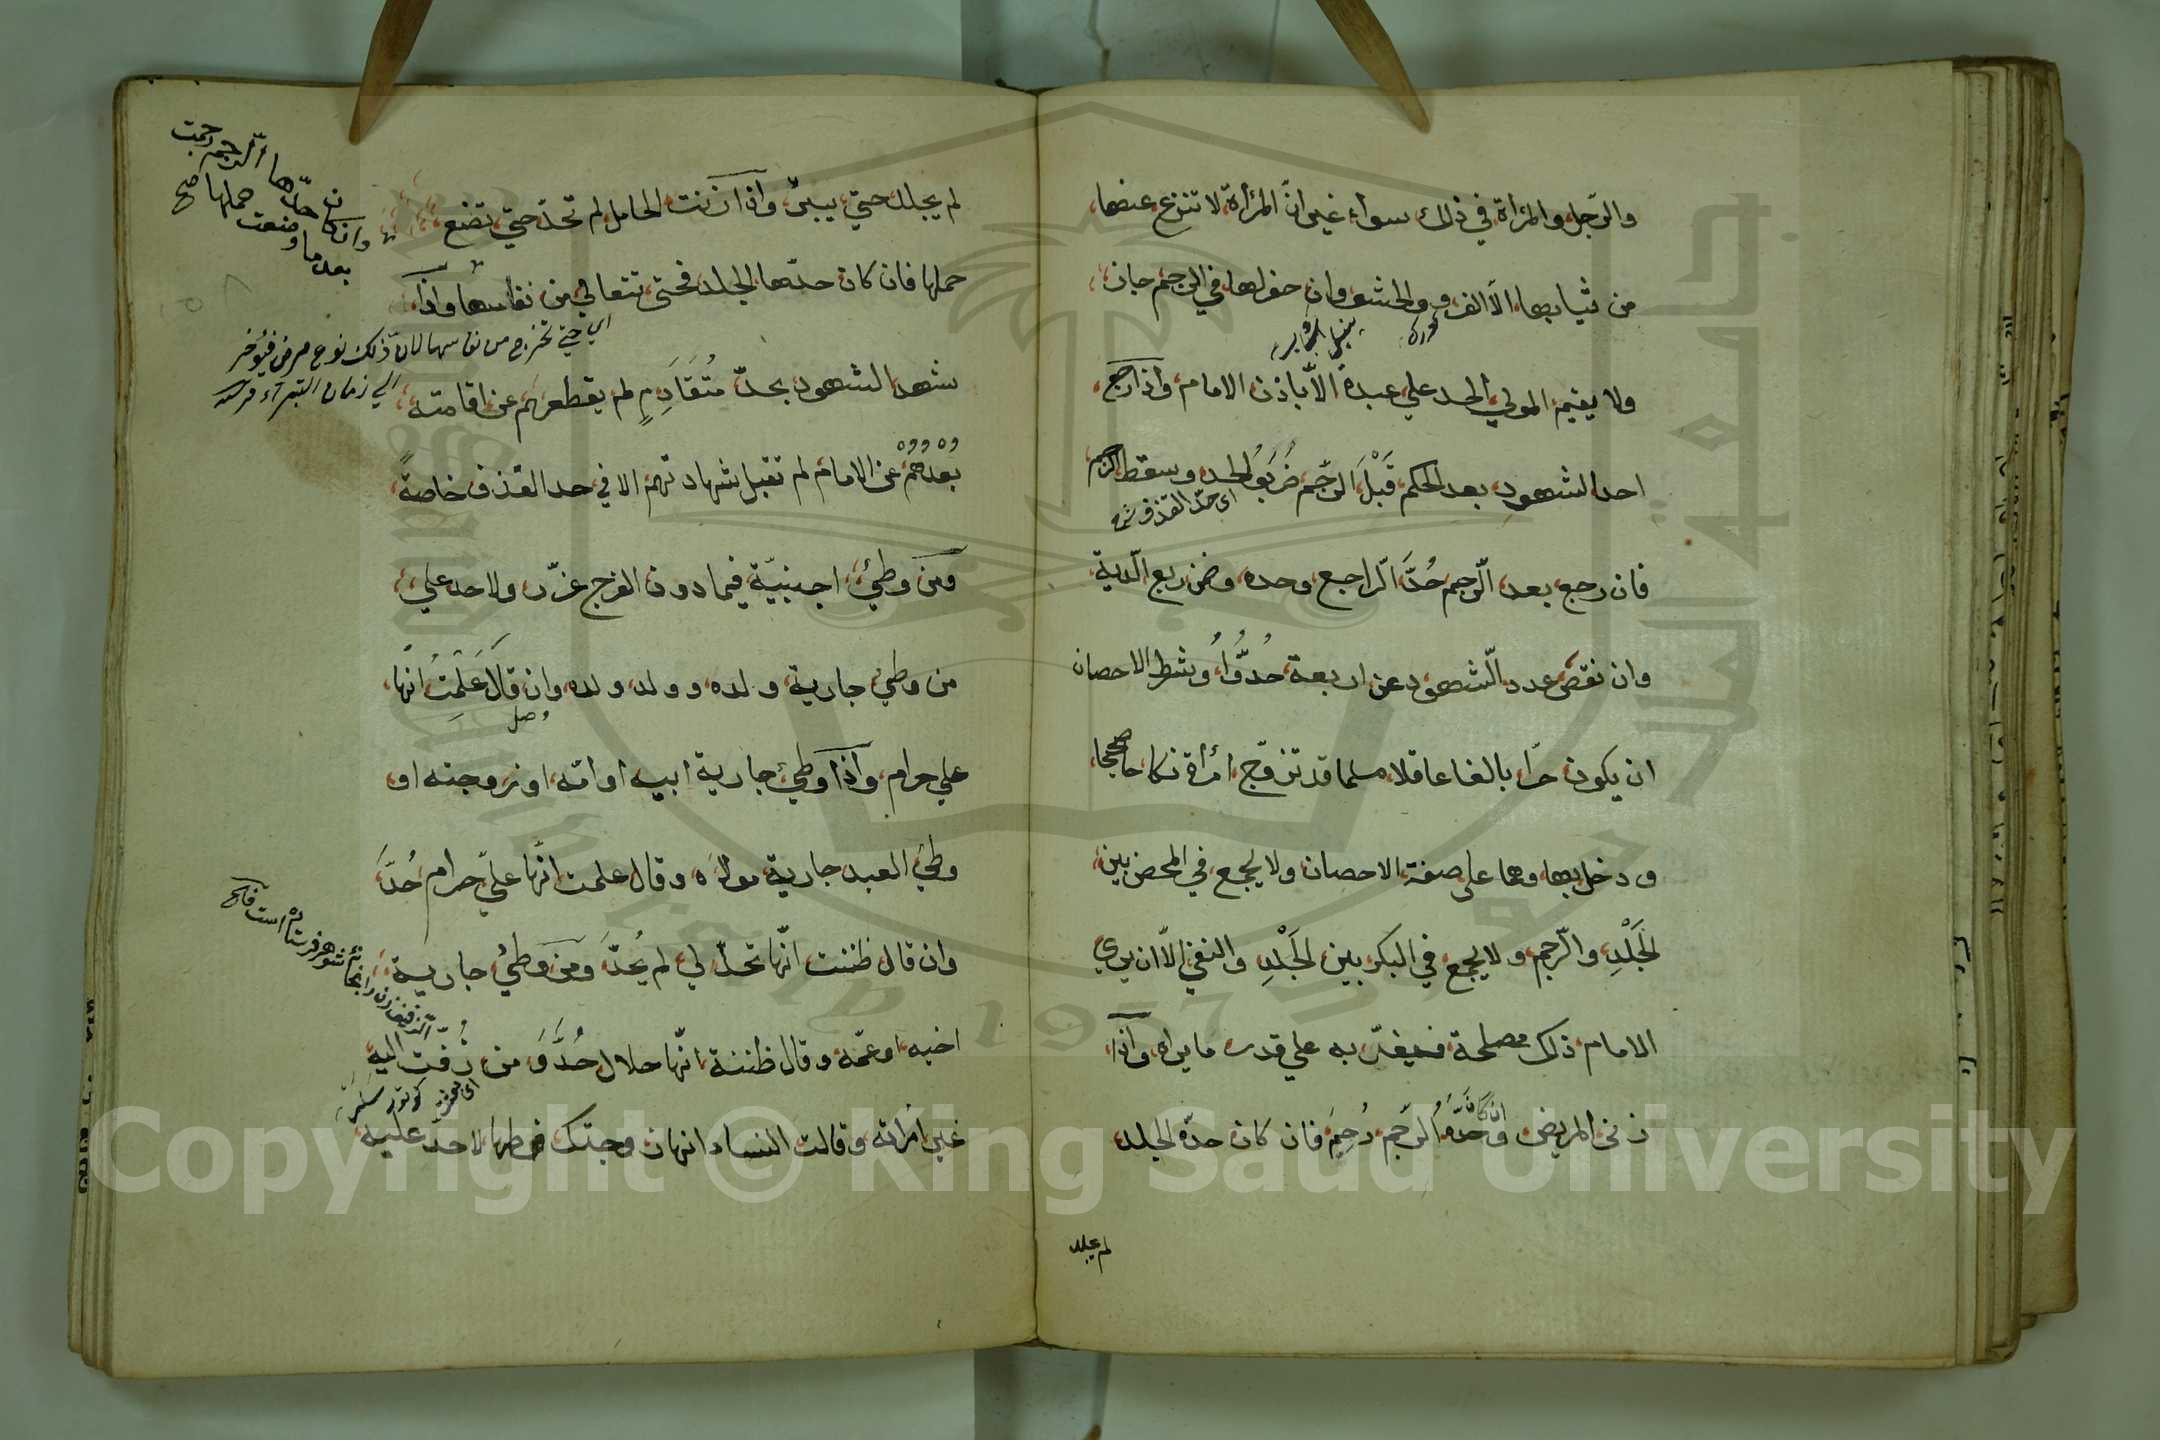 والرّجل والمرأة في ذلك سواء غير انّ المرأة لا تنزع عنها
من ثيابها الا الفرو والحشو وان حفر لها في الرجم جاز
ولا يقيم المولي الحد علي عبده الّا باذن الامام واذا رجع
احد الشهود بعد الحكم قَبْلَ الرّجم ضُرِبُوُ الحد وسقط الرجم
اي حدّ القذف
فان رجع بعد الّرجم حُدَّ الّراجع وحده وضمن ربع الّدية
وان نقص عدد الّشهود عن اربعة حُدُّواُ وشرط الاحصان
ان يكون حرّا بالغا عاقلا مسلما قد تزوّج امرأة نكاحا صحيحا
ودخل بها وهما على صفة الاحصان ولا يجمع في المحصن بين
الجَلْدِ والّرجم ولا يجمع في البكر بين الجَلْدِ والنفي الّا ان يري
الامام ذلك مصلحة فيغرّ به علي قدر ما يراه واذا
زني المريض وحَدّهُ الرّجم رُجِمَ فان كان حدّه الجلد
لم يجلد
لم يجلد حتي يبرئ واذا زنت الحامل لم تحدّ حتي تضع
وان كان حدّها الّرجم رجمت
بعد ما وضعت حملها صح
حملها فان كان حدّها الجلد فحتى تتعالي من نفاسها واذا
اي حتي تخرج من نفاسها لانّ ذلك نوع مرض فيؤخر
الي زمان البرء
شهد الشهود بحدّ مُتَقَادِمٍ لم يقطعهم عن اقامته
بُعْدُهُمْ عن الامام لم تقبل شهادتهم الا في حد القذف خاصةً
ومن وطئ اجنبيّة فيما دون الفرج عزّر ولا حد علي
من وطئ جارية ولده وولد ولده وان قالَ عَلِمْتُ انّها
علي حرام واذا وطئ جارية ابيه او امّه او زوجته او
وطئ العبد جارية مولاه وقال علمت انّها عليّ حرام حُدَّ
وان قال ظننت انّها تحلّ لي لم يُحدَّ ومن وطئ جارية
اخيه او عمّه وقال ظننت انّها حلال حُدَّ وَ من زُفّت اليه
غير امراته وقالت النساء انها زوجتك فوطئها لا حدّ عليه
Copyright © King Saud University
1957